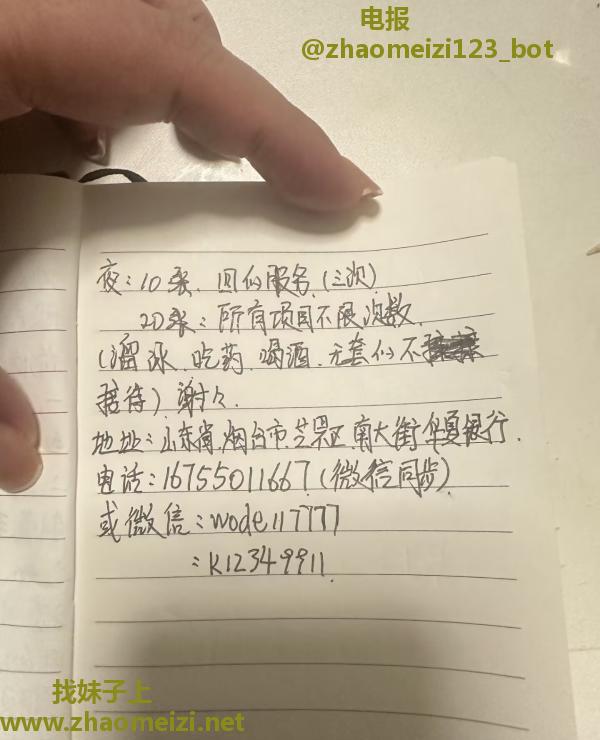 电报
@zhaomeizi123_bot
夜:10张.回似服务.(三次)
20张:所有项目不限次数.
(溜冰.吃药.喝酒.无套似不
接待)谢谢.
地址:山东省.烟台市.芝罘区.南大街华夏银行.
电话:16755011667(微信同步)
或微信:wode117777
:k12349911.
找妹子上
www.zhaomeizi.net